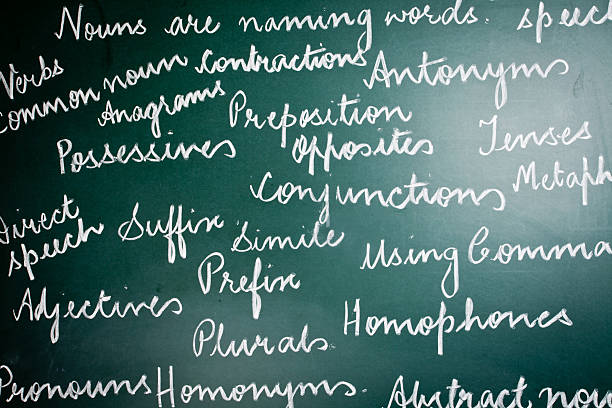 Nouns are naming words. speech
Verbs
Common noun contractions Antonyms
Anagrams Preposition
Possessives Opposites Tenses
Conjunctions Metaph
Direct
speech Suffix Simile Using Comma
Prefix
Adjectives Homophones
Plurals
Pronouns Homonyms. Abstract nou